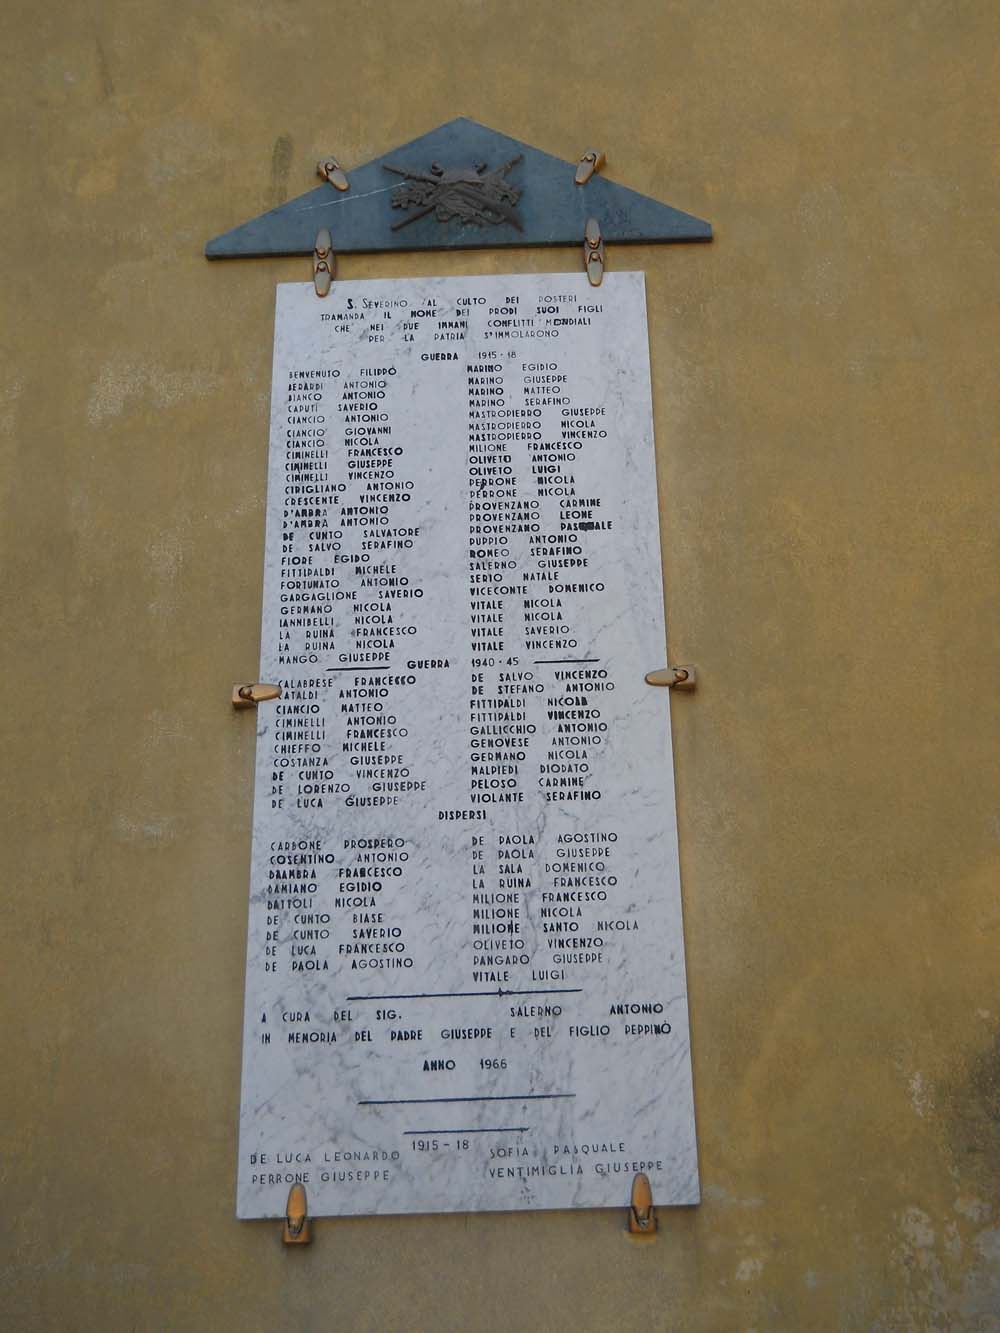 S. SEVERINO AL CULTO DEI POSTERI
TRAMANDA IL NOME DEI PRODI SUOI FIGLI
CHE NEI DUE IMMANI CONFLITTI MONDIALI
PER LA PATRIA S'IMMOLARONO
GUERRA 1915-18
BENVENUTO FILIPPO
BERARDI ANTONIO
BIANCO ANTONIO
CAPUTI SAVERIO
CIANCIO ANTONIO
CIANCIO GIOVANNI
CIANCIO NICOLA
CIMINELLI FRANCESCO
CIMINELLI GIUSEPPE
CIMINELLI VINCENZO
CIRIGLIANO ANTONIO
CRESCENTE VINCENZO
D'AMBRA ANTONIO
D'AMBRA ANTONIO
DE CUNTO SALVATORE
DE SALVO SERAFINO
FIORE EGIDO
FITTIPALDI MICHELE
FORTUNATO ANTONIO
GARGAGLIONE SAVERIO
GERMANO NICOLA
IANNIBELLI NICOLA
LA RUINA FRANCESCO
LA RUINA NICOLA
MANGO GIUSEPPE
MARINO EGIDIO
MARINO GIUSEPPE
MARINO MATTEO
MARINO SERAFINO
MASTROPIERRO GIUSEPPE
MASTROPIERRO NICOLA
MASTROPIERRO VINCENZO
MILIONE FRANCESCO
OLIVETO ANTONIO
OLIVETO LUIGI
PERRONE NICOLA
PERRONE NICOLA
PROVENZANO CARMINE
PROVENZANO LEONE
PROVENZANO PASQUALE
PUPPIO ANTONIO
ROMEO SERAFINO
SALERNO GIUSEPPE
SERIO NATALE
VICECONTE DOMENICO
VITALE NICOLA
VITALE NICOLA
VITALE SAVERIO
VITALE VINCENZO
GUERRA 1940-45
CALABRESE FRANCESCO
CATALDI ANTONIO
CIANCIO MATTEO
CIMINELLI ANTONIO
CIMINELLI FRANCESCO
CHIEFFO MICHELE
COSTANZA GIUSEPPE
DE CUNTO VINCENZO
DE LORENZO GIUSEPPE
DE LUCA GIUSEPPE
DE SALVO VINCENZO
DE STEFANO ANTONIO
FITTIPALDI NICOLA
FITTIPALDI VINCENZO
GALLICCHIO ANTONIO
GENOVESE ANTONIO
GERMANO NICOLA
MALPIEDI DIODATO
PELOSO CARMINE
VIOLANTE SERAFINO
DISPERSI
CARBONE PROSPERO
COSENTINO ANTONIO
DAMBRA FRANCESCO
DAMIANO EGIDIO
DATTOLI NICOLA
DE CUNTO BIASE
DE CUNTO SAVERIO
DE LUCA FRANCESCO
DE PAOLA AGOSTINO
DE PAOLA AGOSTINO
DE PAOLA GIUSEPPE
LA SALA DOMENICO
LA RUINA FRANCESCO
MILIONE FRANCESCO
MILIONE NICOLA
MILIONE SANTO NICOLA
OLIVETO VINCENZO
PANGARO GIUSEPPE
VITALE LUIGI
A CURA DEL SIG. SALERNO ANTONIO
IN MEMORIA DEL PADRE GIUSEPPE E DEL FIGLIO PEPPINO
ANNO 1966
1915-18
DE LUCA LEONARDO
PERRONE GIUSEPPE
SOFIA PASQUALE
VENTIMIGLIA GIUSEPPE